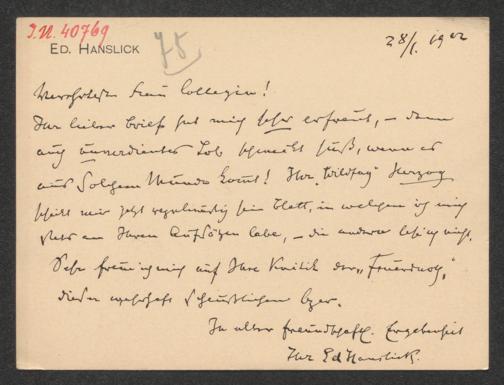 I.N. 40769
ED. HANSLICK
75
28/1. 1902
Verehrteste Frau Collegin!
Ihr lieber Brief hat mich sehr erfreut, – denn
auch unverdientes Lob schmeckt süß, wenn es
aus solchem Munde kommt! Ihr „Wildfang" Herzog
schickt mir jetzt regelmäßig sein Blatt, in welchem ich mich
stets an Ihren Aufsätzen labe, – die andern les' ich nicht.
Sehr freu' ich mich auf Ihre Kritik der „Feuersnoth,"
dieser wahrhaft scheußlichen Oper.
In alter freundschaftl. Ergebenheit
Ihr Ed Hanslick.